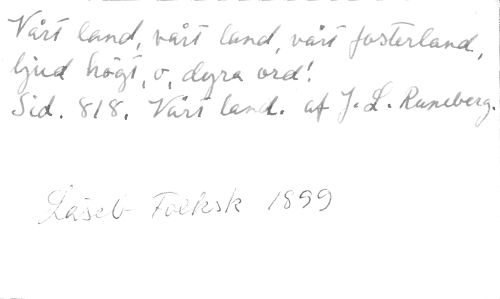 Vårt land, vårt land, vårt fosterland,
ljud högt, o, dyra ord!
Sid. 818. Vårt land. af J. L. Runeberg.
Läseb Folksk 1899